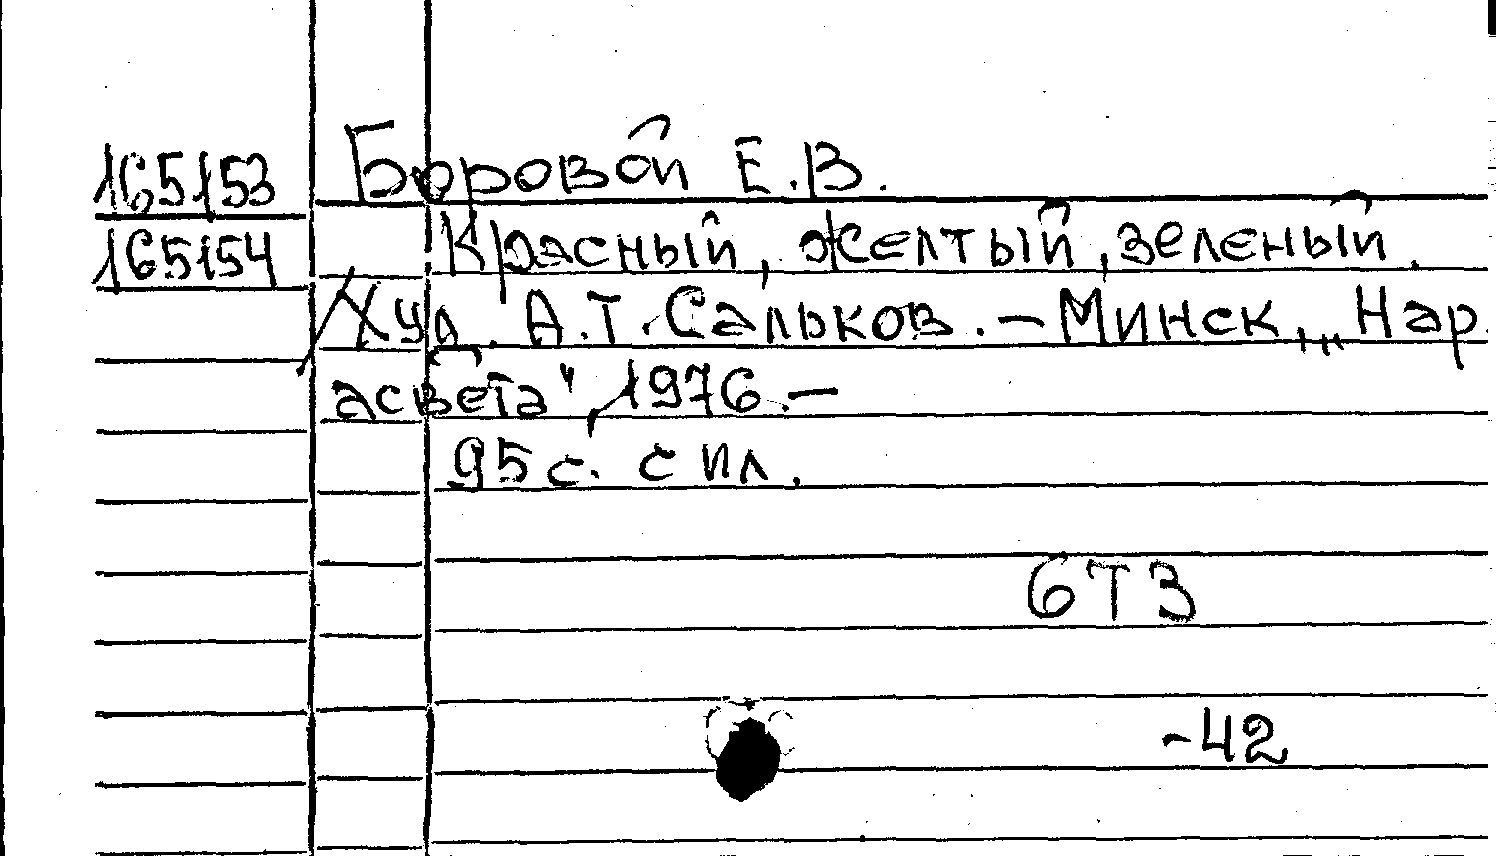 165153 Боровой Е.В.
165154 Красный, желтый, зеленый.
Худ. А.Т. Сальков. – Минск, „Нар.
асвета", 1976. –
95 с. с ил.
6Т3
-42